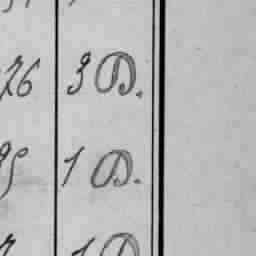 26 3 D.
1 D.
1 D